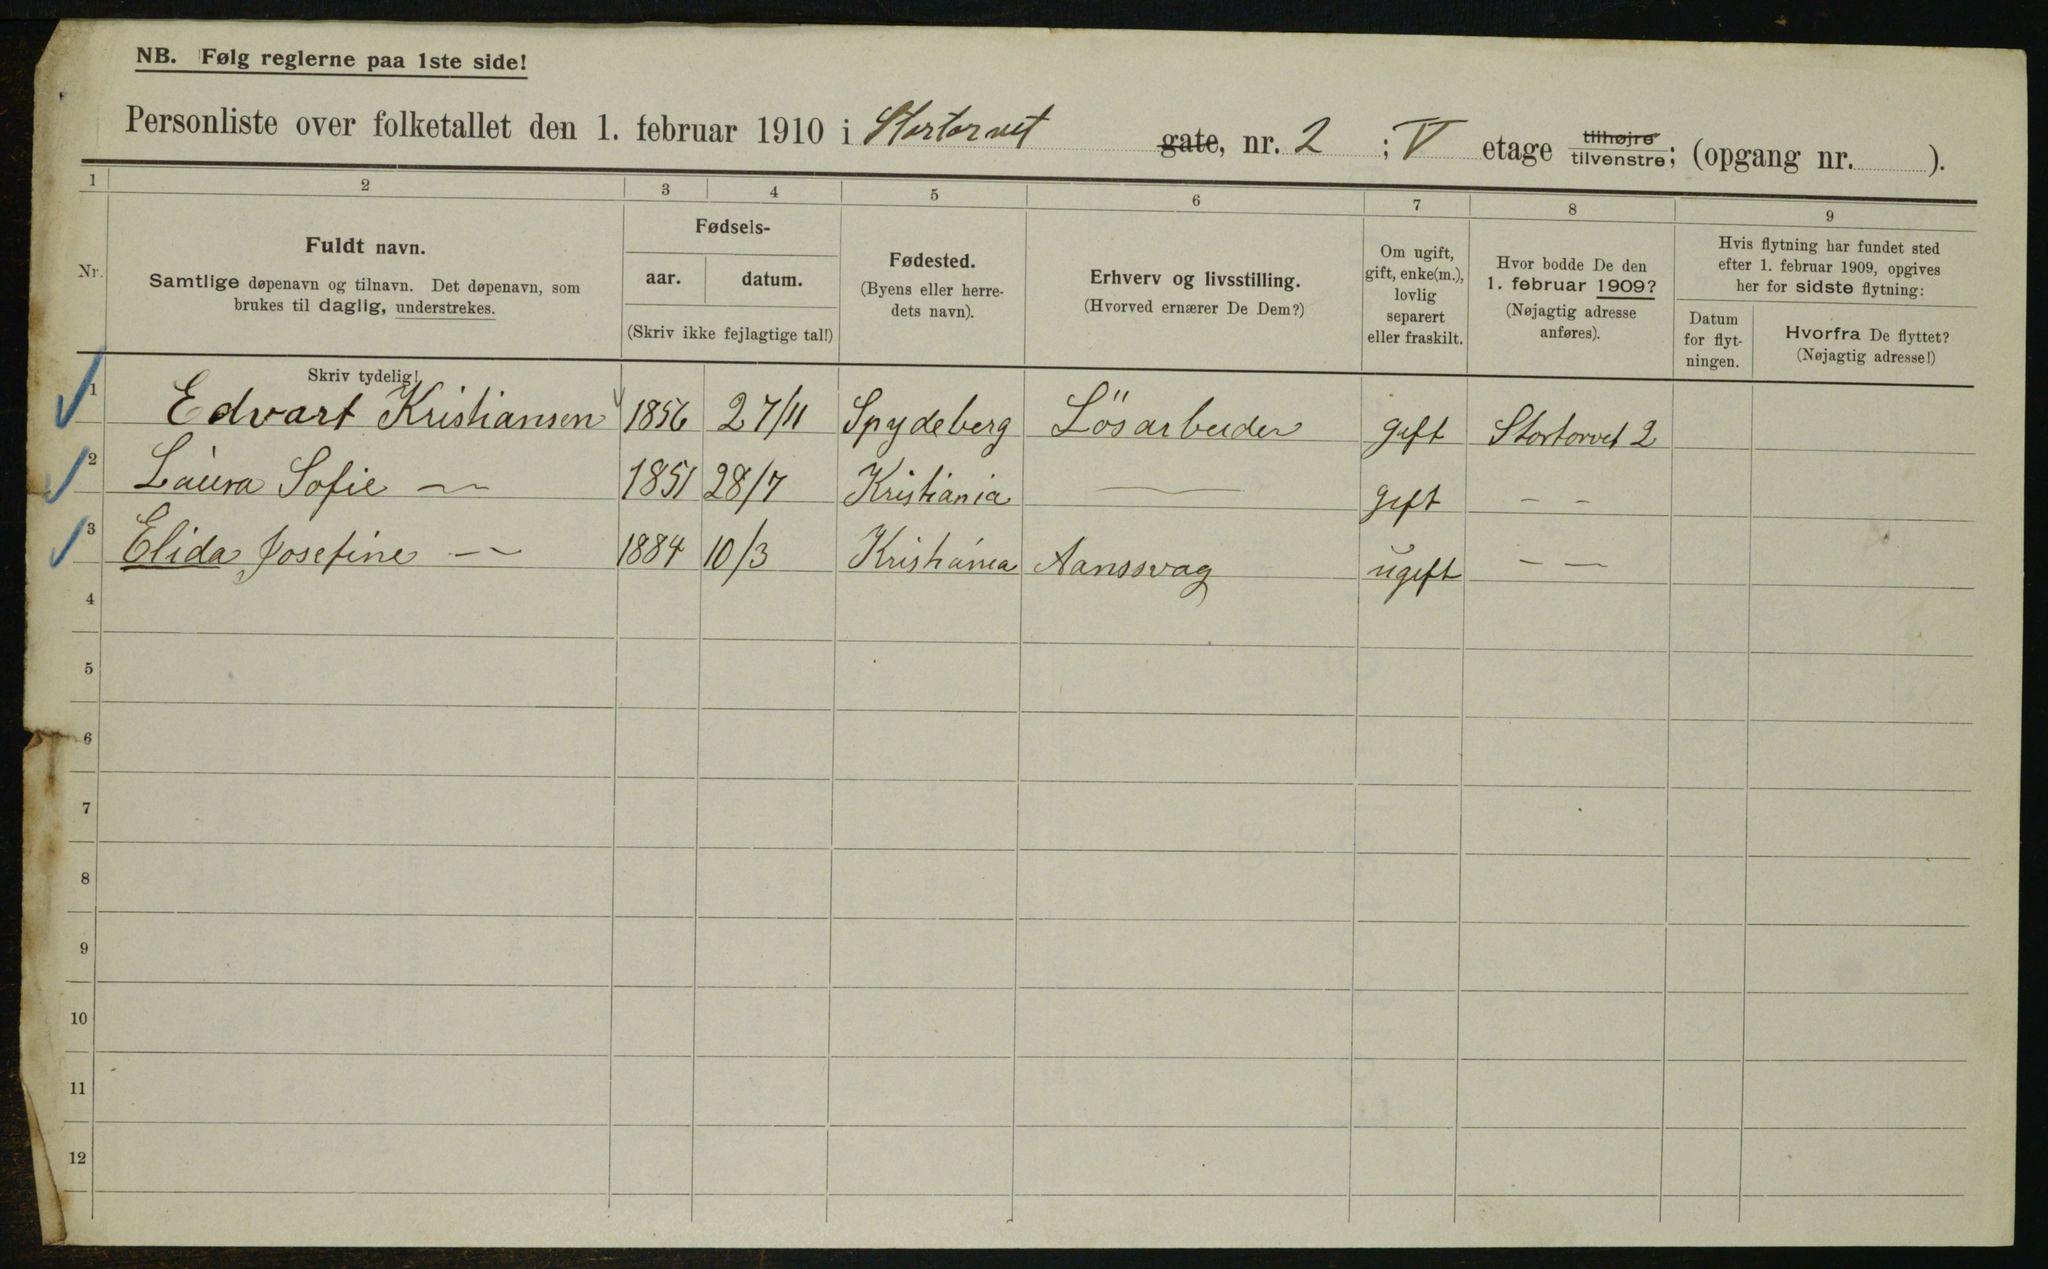 NB. Følg reglerne paa 1ste side!
Personliste over folketallet den 1. februar 1910 i Stortorvet gate, nr. 2 ; V etage tilhøjre tilvenstre; (opgang nr. ).
1 2 3 4 5 6 7 8 9
Nr.
Fuldt navn.
Samtlige døpenavn og tilnavn. Det døpenavn, som
brukes til daglig, understrekes.
Fødsels-
aar. datum.
(Skriv ikke fejlagtige tal!)
Fødested.
(Byens eller herre-
dets navn).
Erhverv og livsstilling.
(Hvorved ernærer De Dem?)
Om ugift,
gift, enke(m.),
lovlig
separert
eller fraskilt.
Hvor bodde De den
1. februar 1909?
(Nøjagtig adresse
anføres).
Hvis flytning har fundet sted
efter 1. februar 1909, opgives
her for sidste flytning:
Datum
for flyt-
ningen.
Hvorfra De flyttet?
(Nøjagtig adresse!)
Skriv tydelig!
1 Edvart Kristiansen 1856 27/11 Spydeberg Lösarbeider gift Stortorvet 2
2 Laura Sofie — 1851 28/7 Kristiania — gift – –
3 Elida Josefine — 1884 10/3 Kristiania Aanssvag ugift – –
4
5
6
7
8
9
10
11
12